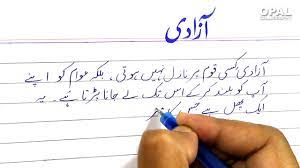 OPAL
آزادی
آزادی کسی قوم پر نازل نہیں ہوتی، بلکہ عوام کو اپنے
آپ کو بلند کر کے اس تک لے جانا پڑتا ہے۔ یہ
ایک پھل ہے جس کو